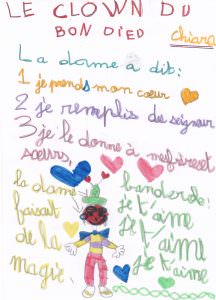 LE CLOWN DU
BON DIED
chiara
La dame a dit:
1 je prends mon coeur
2 je remplis du seigneur
3 je le donne à mes frères et
sœurs,
la dame
faisait
de la
magie.
je t'aime
je t'aime
je t'aime